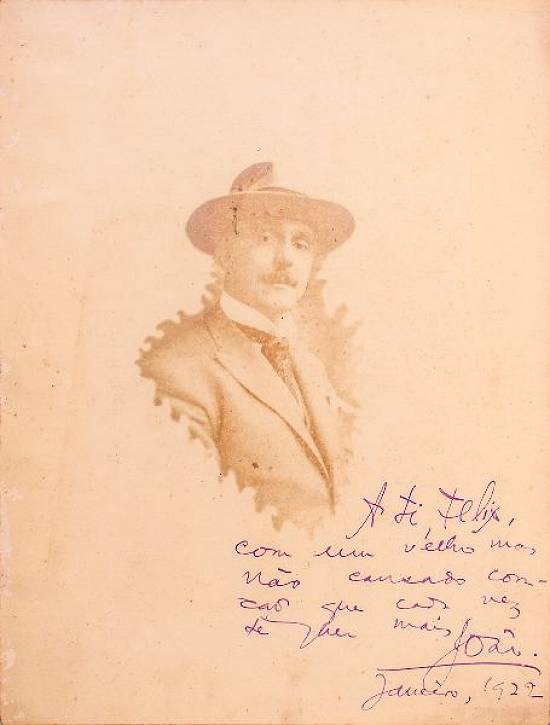 A ti, Felix,
com um velho mas
não cansado cora-
ção que cada vez
te quer mais
João.
Janeiro, 1922